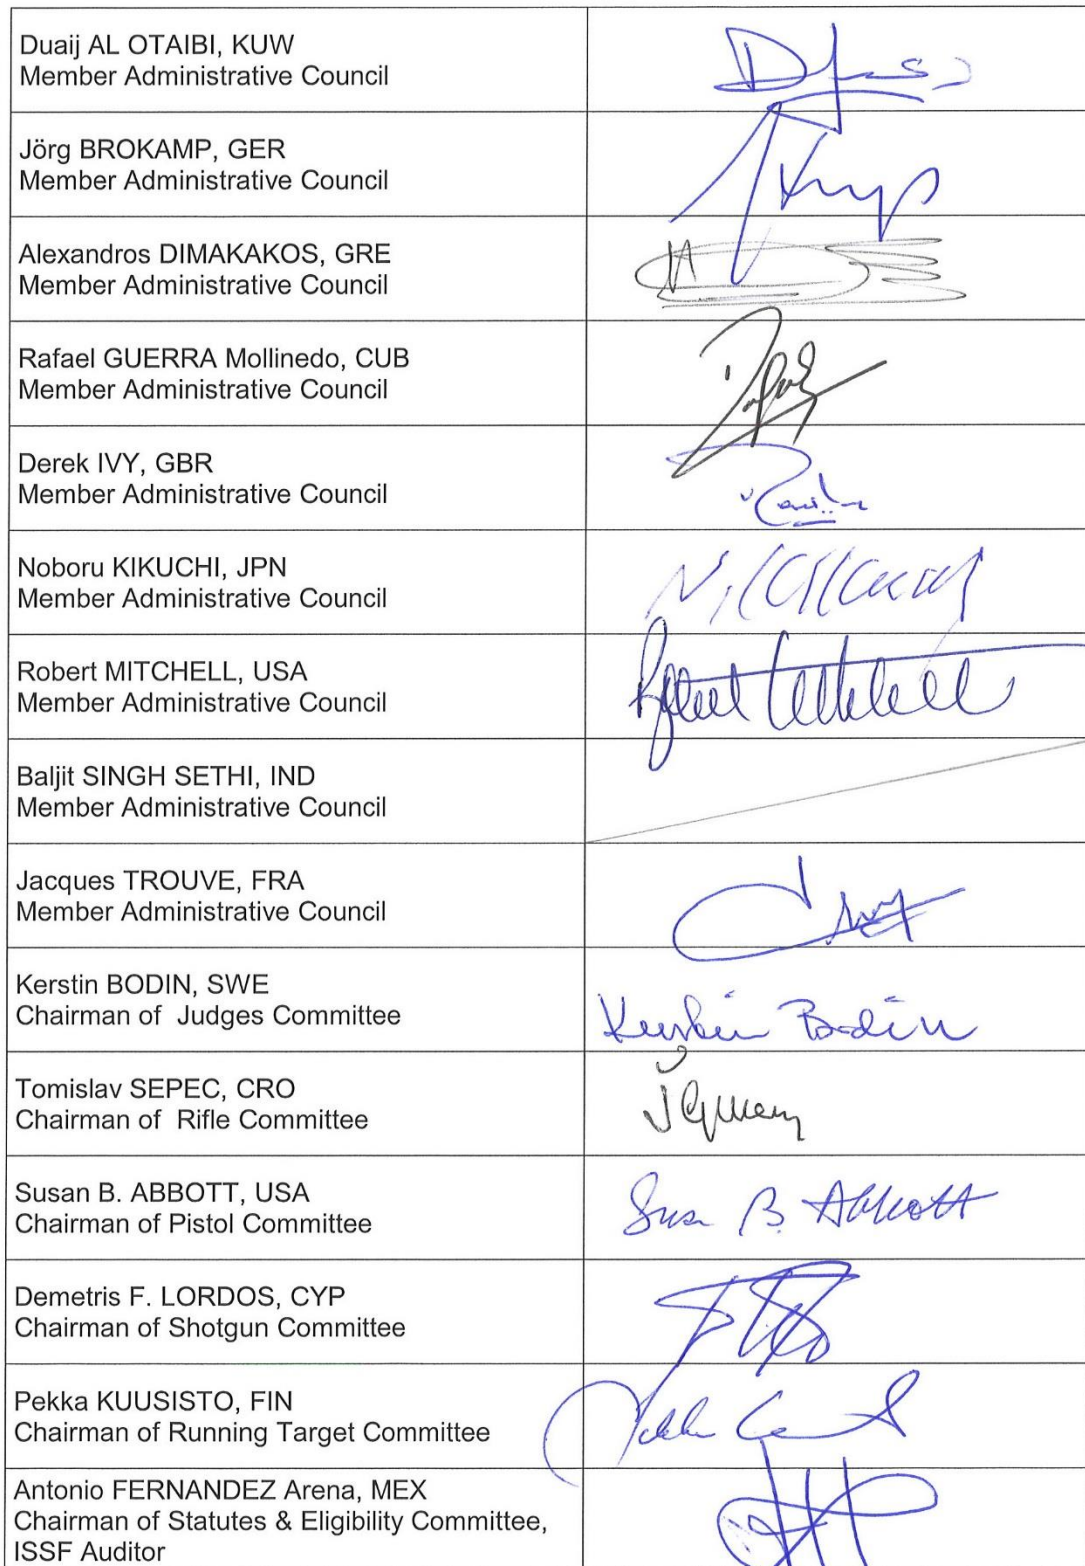 Duaij AL OTAIBI, KUW
Member Administrative Council
Jörg BROKAMP, GER
Member Administrative Council
Alexandros DIMAKAKOS, GRE
Member Administrative Council
Rafael GUERRA Mollinedo, CUB
Member Administrative Council
Derek IVY, GBR
Member Administrative Council
Noboru KIKUCHI, JPN
Member Administrative Council
Robert MITCHELL, USA
Member Administrative Council
Robert Mitchell
Baljit SINGH SETHI, IND
Member Administrative Council
Jacques TROUVE, FRA
Member Administrative Council
Kerstin BODIN, SWE
Chairman of  Judges Committee
Kerstin Bodin
Tomislav SEPEC, CRO
Chairman of  Rifle Committee
Susan B. ABBOTT, USA
Chairman of Pistol Committee
Susan B. Abbott
Demetris F. LORDOS, CYP
Chairman of Shotgun Committee
Pekka KUUSISTO, FIN
Chairman of Running Target Committee
Antonio FERNANDEZ Arena, MEX
Chairman of Statutes & Eligibility Committee,
ISSF Auditor